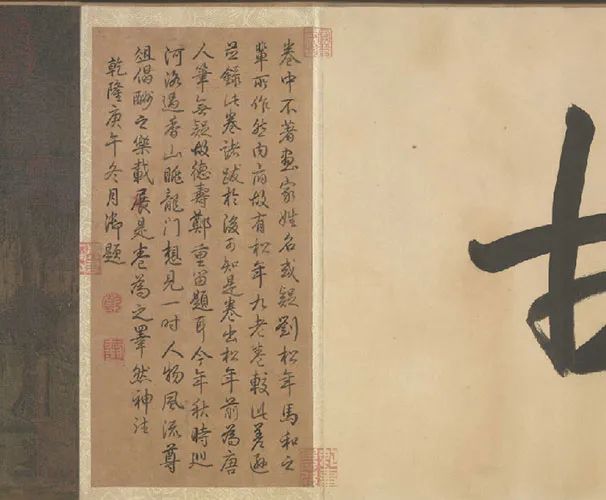 卷中不著畫家姓名或疑劉松年馬和之
輩所作然內府故有松年九老卷較此差遜
並錄此卷諸跋於後可知是卷出松年前為唐
人筆無疑故德壽鄭重留題耳今年秋時巡
河洛過香山眺龍門想見一時人物風流尊
俎倡酬之樂載展是卷為之睪然神往
乾隆庚午冬月御題